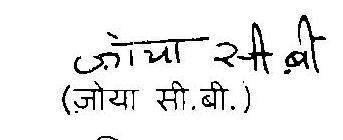 ज़ोया सी बी
(ज़ोया सी.बी.)